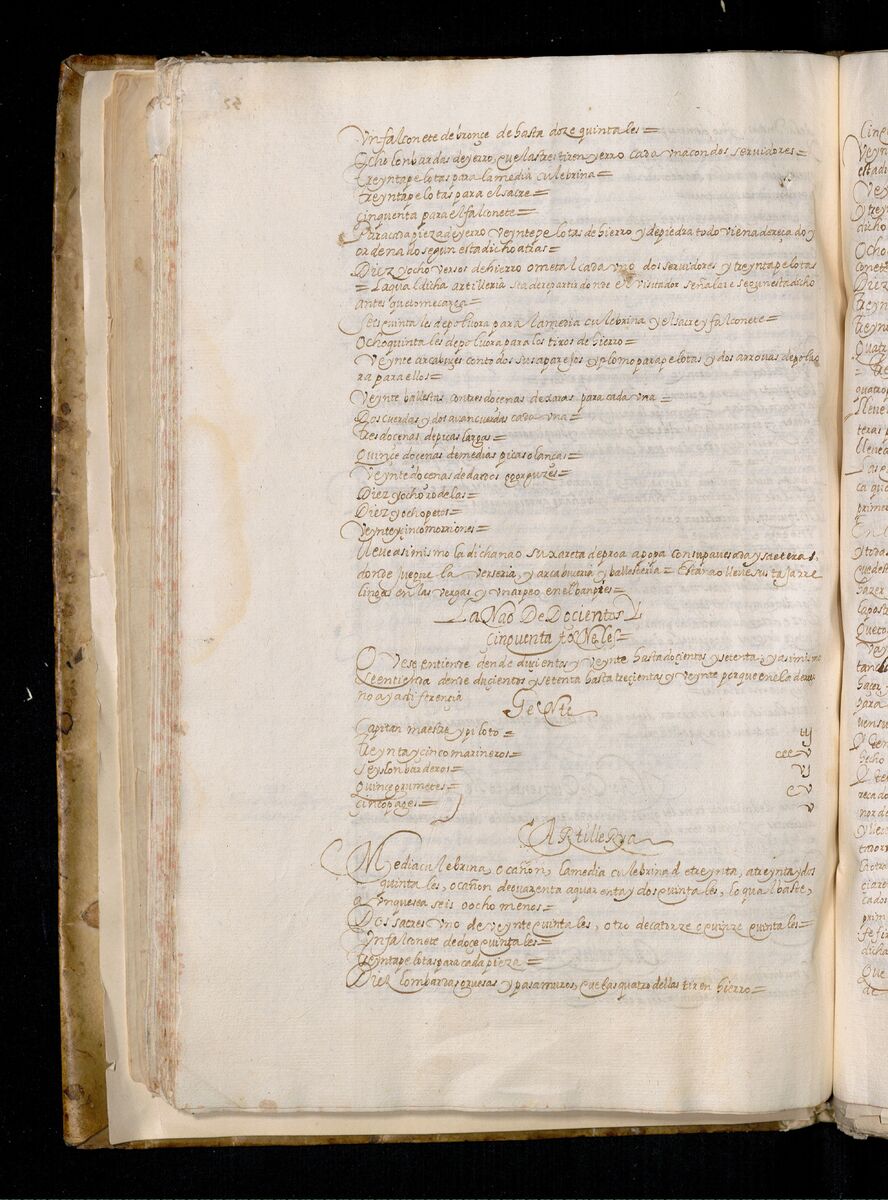 Vn falconete de bronçe de hasta doze quintales =
Ocho lonbardas de yerro, que las tres tiren yerro cada vna con dos servidores =
treynta pelotas para la media culebrina =
treynta pelotas para el sacre =
cinquenta para el falconete =
Para cada pieza de yerro veynte pelotas de hierro y de piedra todo vien adereçado y
ordenado segun esta dicho atras =
Diez y ocho versos de hierro o metal cada vno dos servidores y treynta pelotas
= La qual dicha artilleria sea de repartir donde el visitador señalare segun esta dicho
antes que comença =
Seis quintales de poluora para la media culebrina y el sacre y falconete =
Ocho quintales de poluora para los tiros de hierro =
Veynte arcabuçes con todos sus aparejos y plomo para pelotas y dos arrouas de poluo
ra para ellos =
Veynte ballestas con tres docenas de xaras para cada vna =
Dos cuerdas y dos auancuerdas cada vna =
tres docenas de picas largas =
Quinçe docenas de medias picas o lanças =
Veynte docenas de dardos gorguzes =
Diez y ocho rodelas =
Diez y ocho petos =
Veynte y cinco morriones =
lleve asimismo la dicha nao su xareta de proa a popa con su pauesada y saeteras,
donde juegue la verseria, y arcabuceria y ballesteria = Esta nao lleve sus tajarre
lingas en las vergas y vn arpeo en el baupres =
La Nao De Docientos Y
cinquenta toNeles =
Que se entiende dende duçientos y Veynte hasta docientos y setenta y asimismo
se entienda dende duçientos y setenta hasta treçientas y veynte porque en el a de
no aya diferençia
GeNte
Capitan maestre y piloto = iij
treynta y cinco marineros = ccc v
seys lonbarderos = vj
Quinçe grumetes = c v
çinco pages = v
ARtilleRya
Media culebrina, o cañon, la media culebrina de treynta, a treynta y dos
quintales, o cañon de quarenta a quarenta y dos quintales, lo qual baste,
avnque sea seis o ocho menos =
Dos sacres vno de veynte quintales, otro de catorze o quinze quintales =
Vn falconete de doce quintales =
treynta pelotas para cada pieza =
Diez lombardas gruesas y pasamuros, que las quatro dellas tiren hierro =